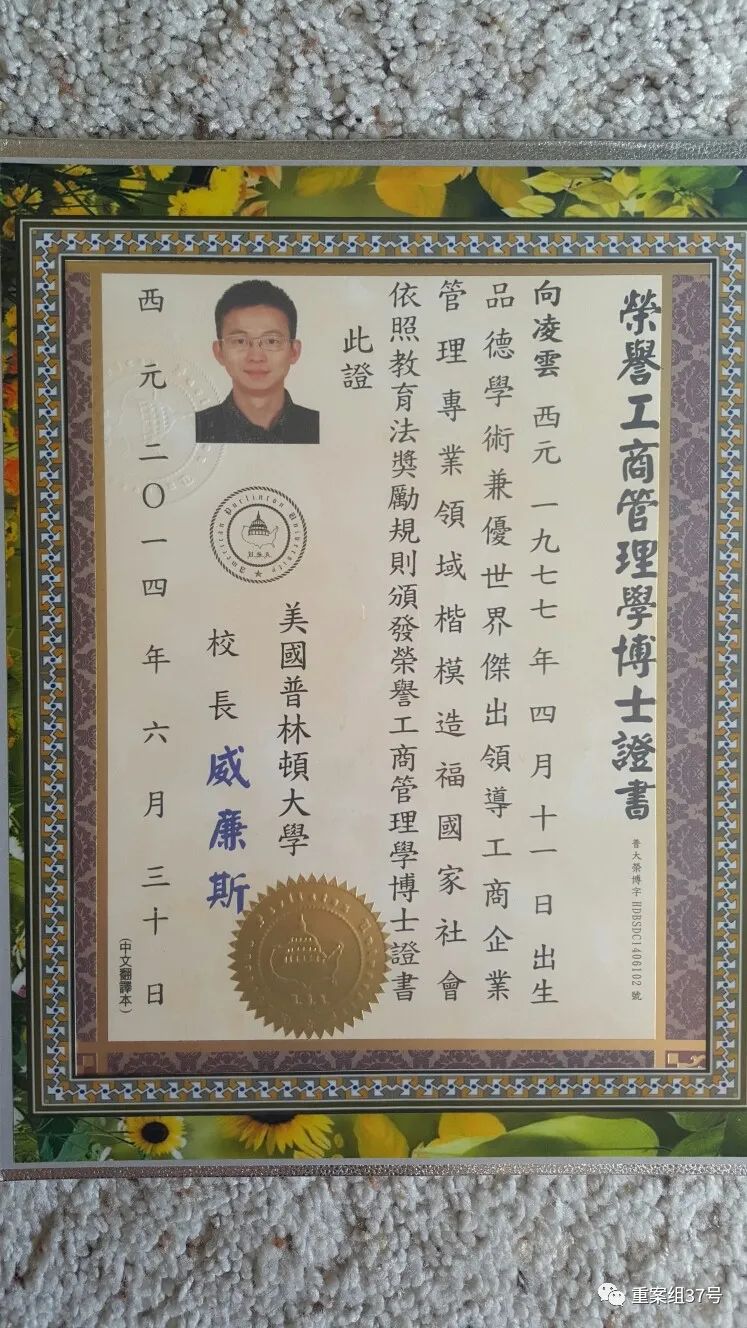 榮譽工商管理學博士證書
普大榮博字 HDBSDC1406102 號
向凌雲 西元 一九七七 年 四 月 十一 日 出生
品德學術兼優世界傑出領導工商企業
管理專業領域楷模造福國家社會
依照教育法獎勵規則頒發榮譽工商管理學博士證書
此證
美國普林頓大學
校長 威廉斯
American Purlinton University
U.S.A.
西元二〇一四年六月三十日
(中文翻譯本)
重案组37号